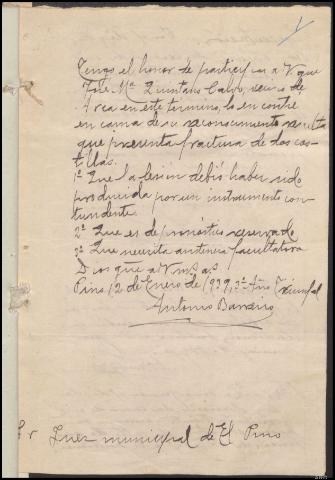 Tengo el honor de participar a V. que
José Mª Quintans Calvo, vecino de
Arca en este termino, lo encontre
en cama de su reconocimiento resulta
que presenta fractura de dos cos-
tillas.
1º Que la lesion debió haber sido
producida por un instrumento con-
tundente.
2º Que es de pronóstico reservado
3º Que necesita asistencia facultativa
Dios gue a V. ms. as.
Pino 12 de Enero de 1939, 3er Año Triunfal
Antonio Barreiro
Sr Juez municipal de El Pino